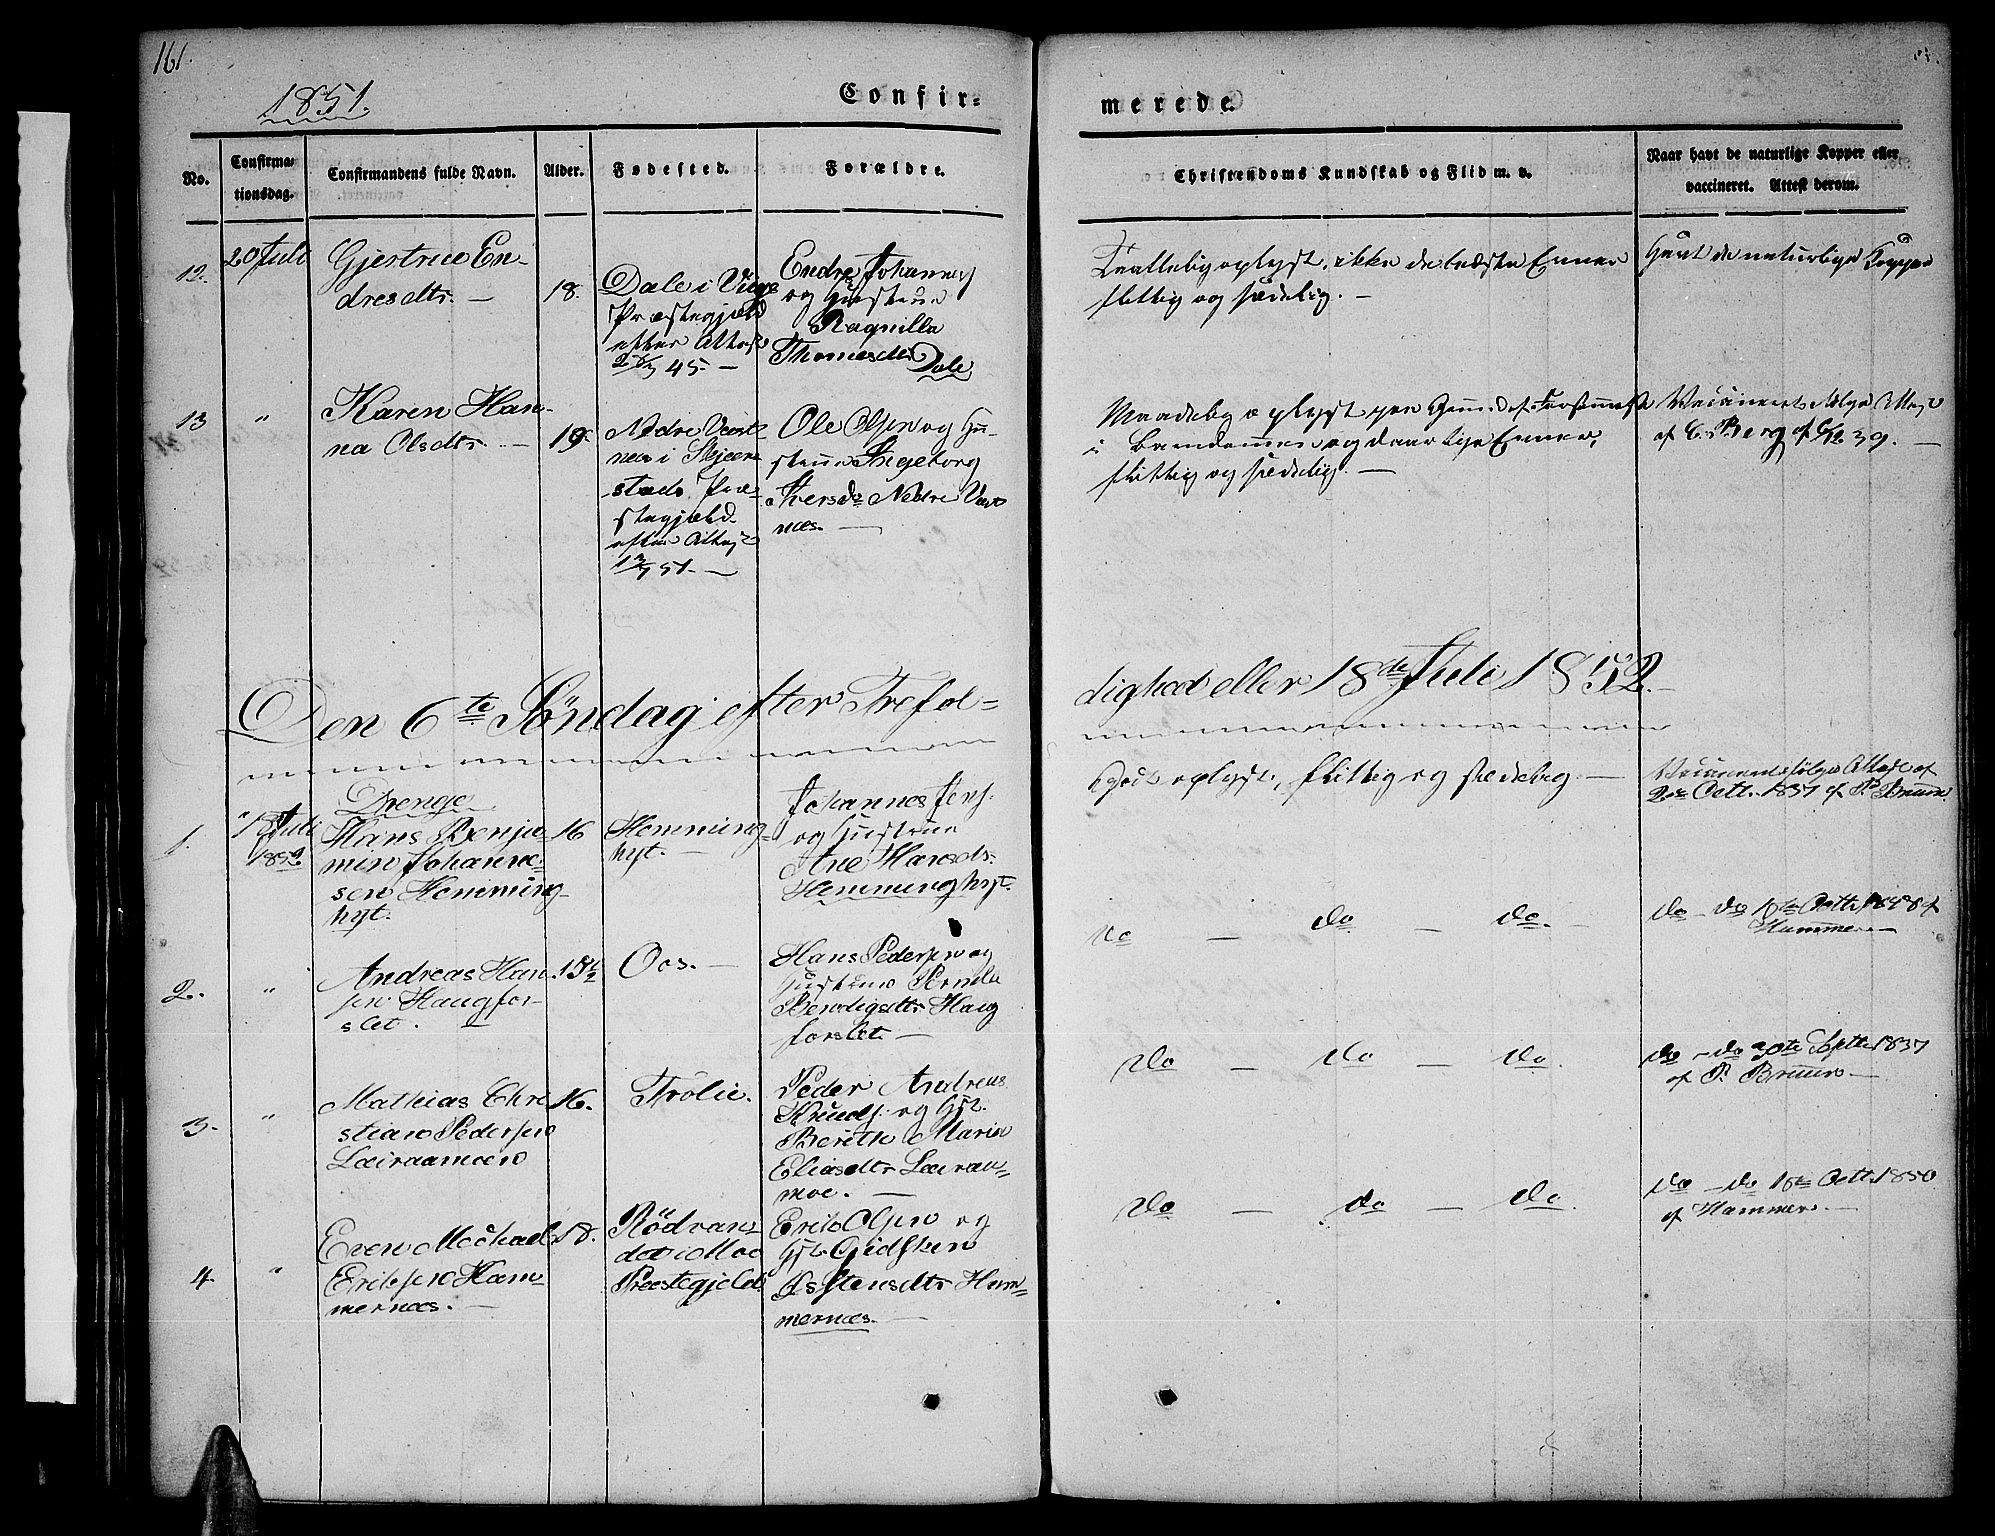 161.
1851.
Confir=
merede.
No.
Confirma-
tionsdag.
Confirmandens fulde Navn.
Alder.
Fødested.
Forældre.
Christendoms Kundskab og Flid m. v.
Naar havt de naturlige Kopper eller
vaccineret. Attest derom.
12.
20 Juli
Gjertrue En-
dresdtr. -
18.
Dale i
Præstegjeld
efter Attest
45. -
Endre Johannes
og Hustrue
Ragnilla
Thomasdtr
Dale
oplyst, ikke de bedste Evner
flittig og sædelig. -
Havt de naturlige Kopper
13
"
Karen Han-
na Olsdtr. -
19.
Nedre
nes i Skjær-
stads Præ-
stegjeld.
efter Attest
51. -
Ole Olsen og Hu-
strue Ingeborg
Iversdr Nedre
næs. -
Maadelig oplyst
i Barndommen og daarlige Evner,
flittig og sædelig. -
af C. Berg af 39. -
Den 6te Söndag efter Trefol=
dighed eller 18de Juli 1852.
Drenge
1.
18 Juli
1852
Hans Benja-
min Johanne-
sen Hemming-
hyt.
16
Hemming-
hyt. -
Johannes Jens.
og Hustrue
Ane Hansdr.
Hemminghyt.
Godt oplyst, flittig og sædelig. -
Vaccineret ifølge Attest af
2den Octbr. 1837 af P. Bruun.
2.
"
Andreas Han
sen Haugfor-
slet. -
15 1/2
Oos. -
Hans Pedersen og
Hustrue Pernila
Bendigsdtr Haug
forslet -
Do - Do - Do. -
Do - Do Octbr
Hammer -
3.
"
Mathias Chri
stian Pedersen
Leiraamoen
16.
Trölie.
Peder Andreas
Knuds. og Hst.
Berethe Maria
Eliasdtr Leiraa=
moe. -
Do - Do - Do.
Do - Do 30te Septbr 1837
af P. Bruun -
4
"
Even Michael
Eriksen Ham=
mernæs. -
18.
Rödvas-
det i Moe
Præstegjeld
Erik Olsen og
Hst. Gidsken
Østensdtr Ham=
mernæs. -
Do - Do - Do.
Do - Do 16de Octbr. 1850
af Hammer. -